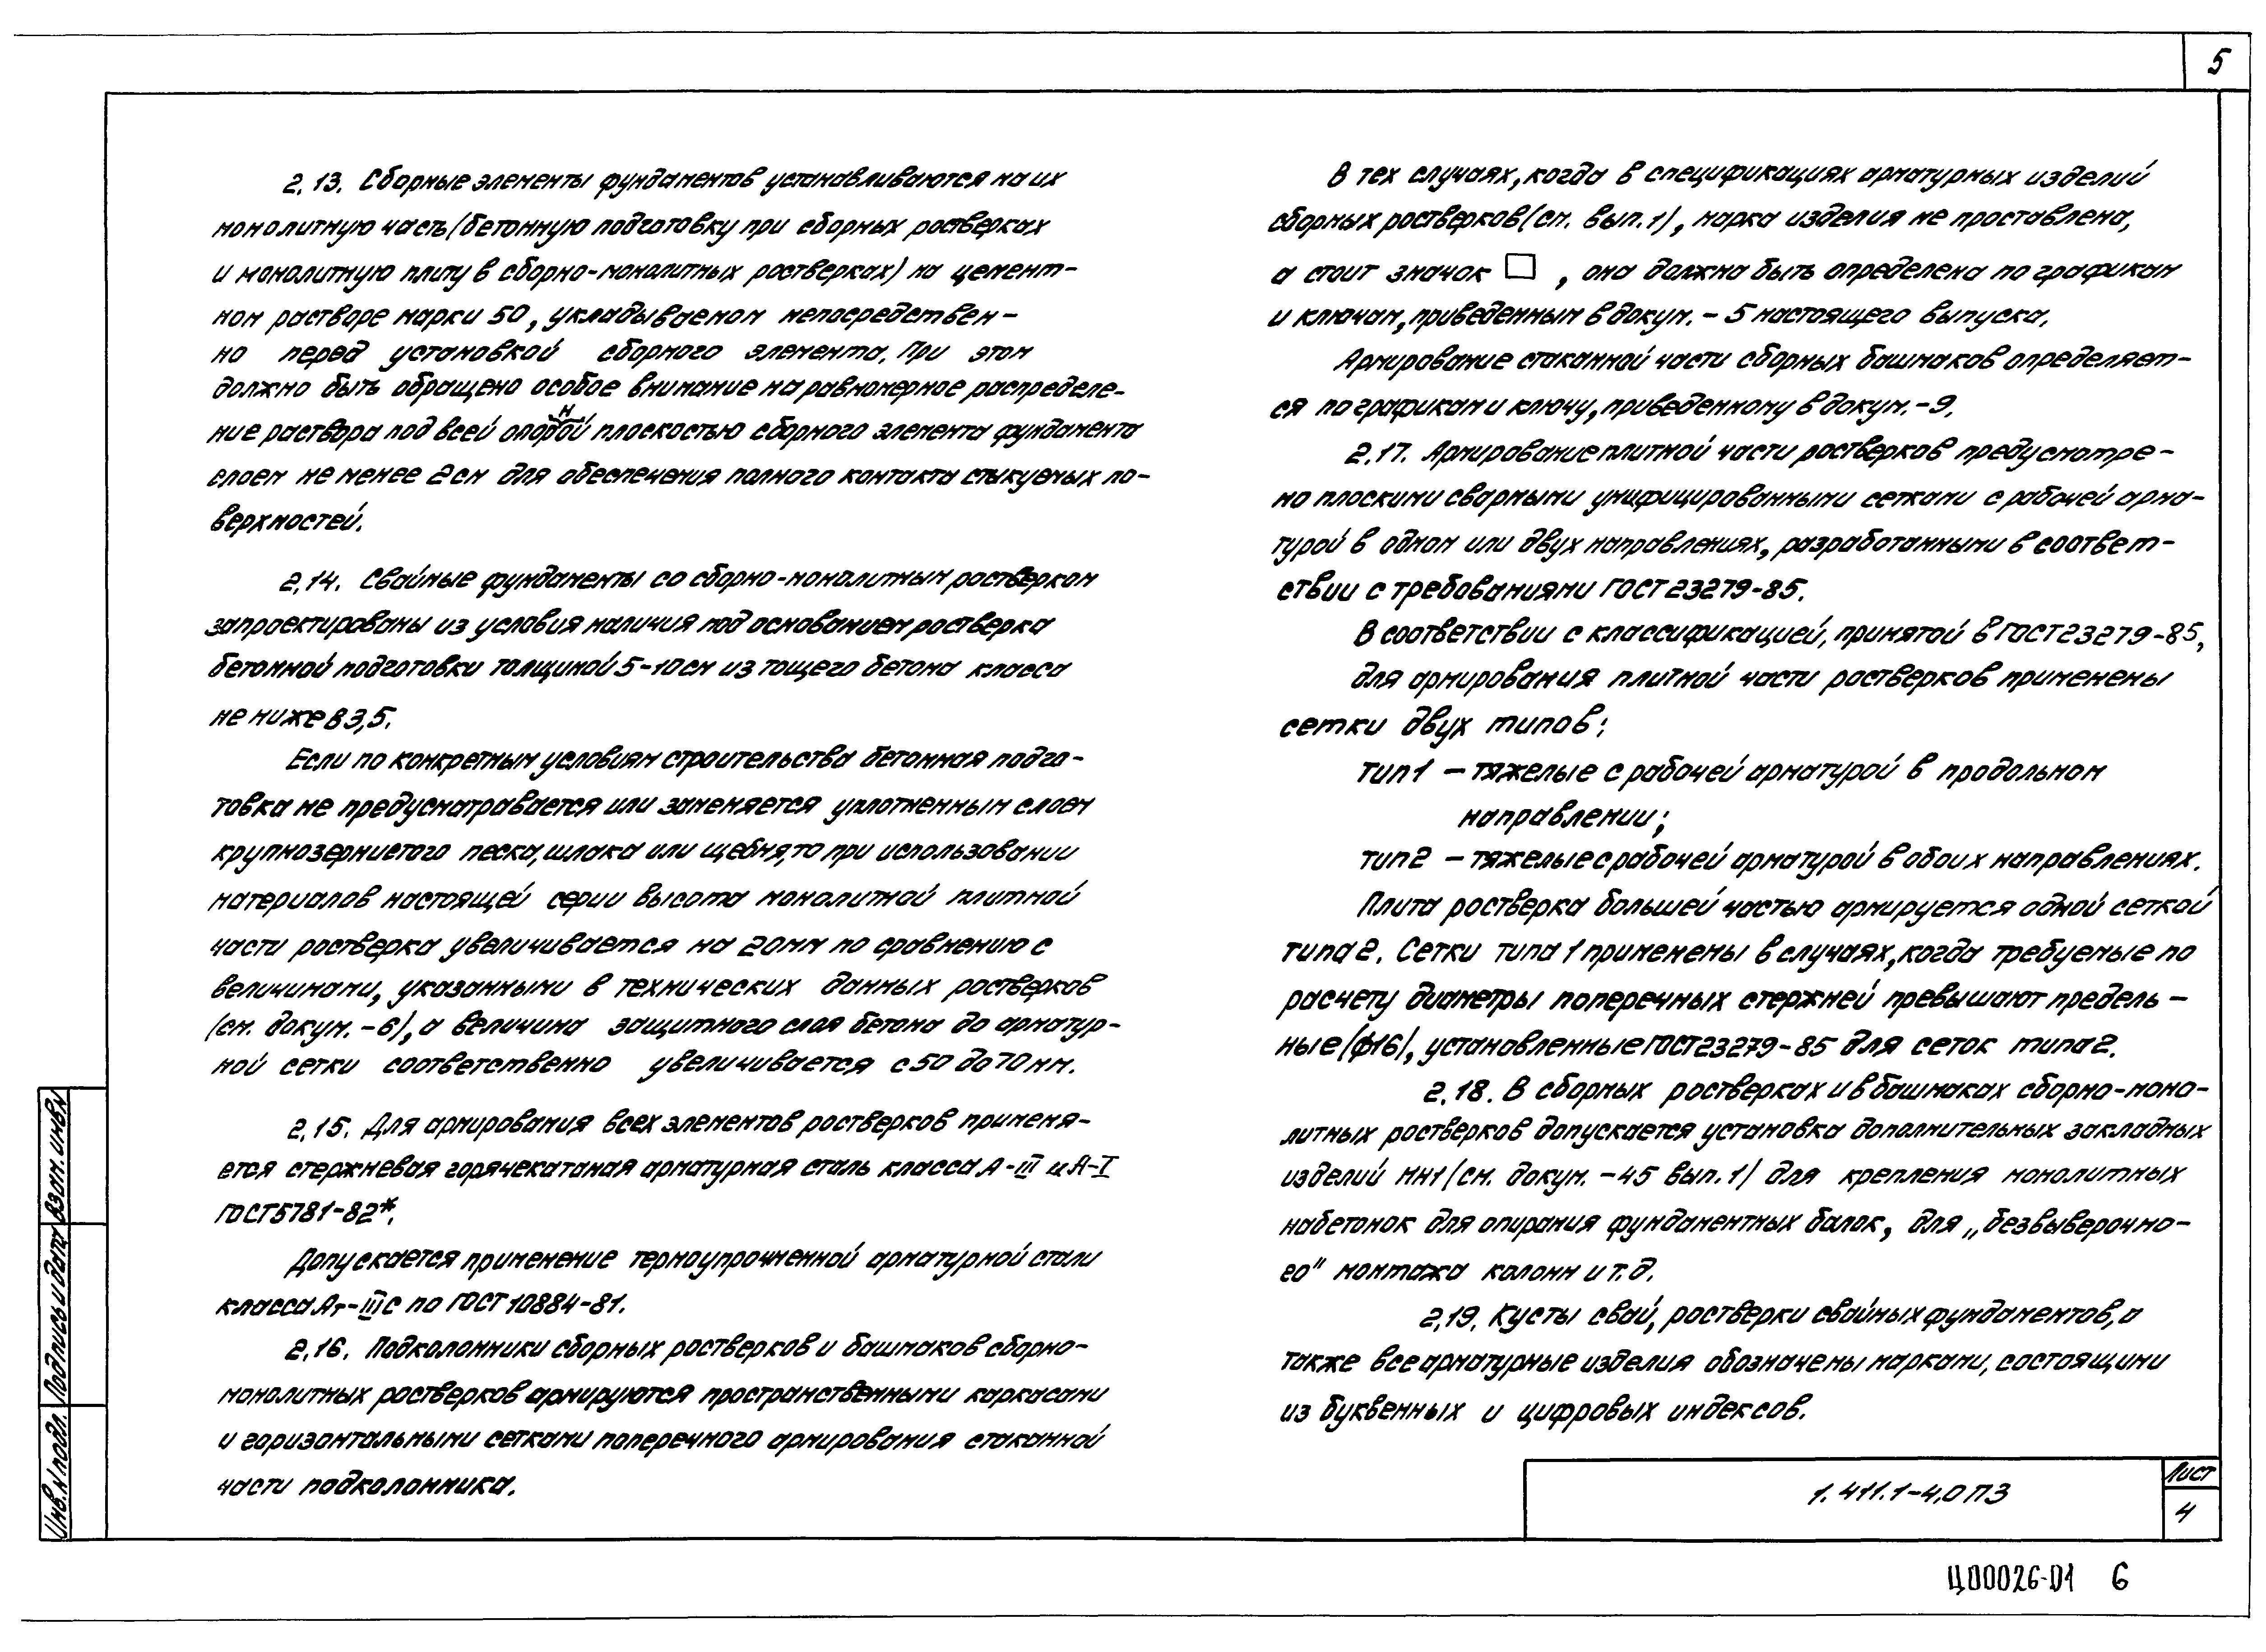 5
2.13. Сборные элементы фундаментов устанавливаются на их
монолитную часть (бетонную подготовку при сборных ростверках
и монолитную плиту в сборно-монолитных ростверках) на цемент-
ном растворе марки 50, укладываемом непосредствен-
но перед установкой сборного элемента. При этом
должно быть обращено особое внимание на равномерное распределе-
ние раствора под всей опорной плоскостью сборного элемента фундамента
слоем не менее 2 см для обеспечения полного контакта стыкуемых по-
верхностей.
2.14. Свайные фундаменты со сборно-монолитным ростверком
запроектированы из условия наличия под основанием ростверка
бетонной подготовки толщиной 5-10 см из тощего бетона класса
не ниже В3,5.
Если по конкретным условиям строительства бетонная подго-
товка не предусматривается или заменяется уплотненным слоем
крупнозернистого песка, шлака или щебня, то при использовании
материалов настоящей серии высота монолитной плитной
части ростверка увеличивается на 20мм по сравнению с
величинами, указанными в технических данных ростверков
(см. докум. -6), а величина защитного слоя бетона до арматур-
ной сетки соответственно увеличивается с 50 до 70 мм.
2.15. Для армирования всех элементов ростверков применя-
ется стержневая горячекатаная арматурная сталь класса А-III и А-I
ГОСТ 5781-82*.
Допускается применение термоупрочненной арматурной стали
класса Ат-IIIС по ГОСТ 10884-81.
2.16. Подколонники сборных ростверков и башмаков сборно-
монолитных ростверков армируются пространственными каркасами
и горизонтальными сетками поперечного армирования стаканной
части подколонника.
В тех случаях, когда в спецификациях арматурных изделий
сборных ростверков (см. вып. 1), марка изделия не проставлена,
а стоит значок □, она должна быть определена по графикам
и ключам, приведенным в докум. - 5 настоящего выпуска.
Армирование стаканной части сборных башмаков определяет-
ся по графикам и ключу, приведенному в докум. -9.
2.17. Армирование плитной части ростверков предусмотре-
но плоскими сварными унифицированными сетками с рабочей арма-
турой в одном или двух направлениях, разработанными в соответ-
ствии с требованиями ГОСТ 23279-85.
В соответствии с классификацией, принятой в ГОСТ 23279-85,
для армирования плитной части ростверков применены
сетки двух типов:
тип 1 - тяжелые с рабочей арматурой в продольном
направлении;
тип 2 - тяжелые с рабочей арматурой в обоих направлениях.
Плита ростверка большей частью армируется одной сеткой
типа 2. Сетки типа 1 применены в случаях, когда требуемые по
расчету диаметры поперечных стержней превышают предель-
ные (ф16), установленные ГОСТ 23279-85 для сеток типа 2.
2.18. В сборных ростверках и в башмаках сборно-моно-
литных ростверков допускается установка дополнительных закладных
изделий МН1 (см. докум. -45 вып. 1) для крепления монолитных
набетонок для опирания фундаментных балок, для „безвыверочно-
го" монтажа колонн и т.д.
2.19. Кусты свай, ростверки свайных фундаментов, а
также все арматурные изделия обозначены марками, состоящими
из буквенных и цифровых индексов.
Инв. N подл. Подпись и дата Взам. инв. N
1.411.1-4.0 ПЗ
Лист
4
Ц00026-01 6